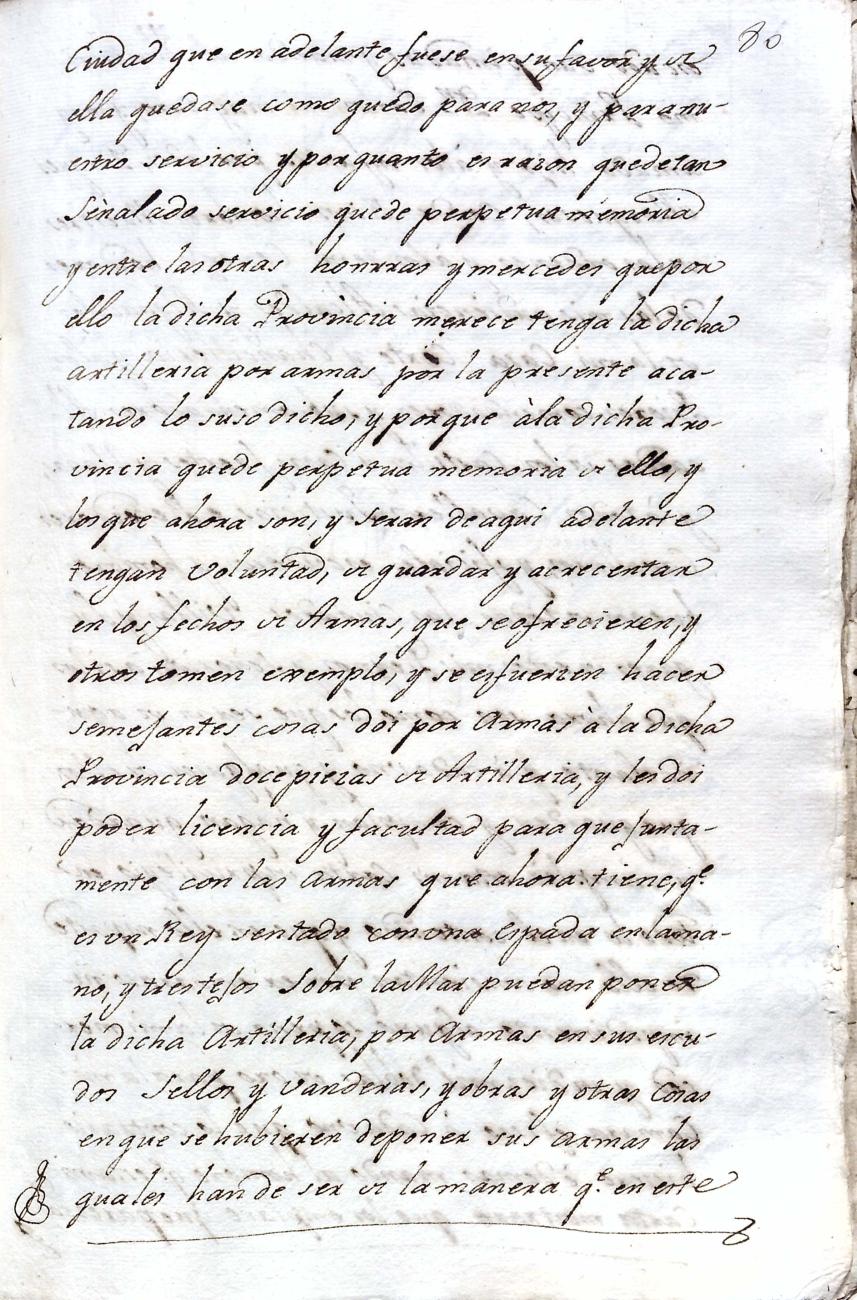 80
Ciudad que en adelante fuese en su favor y de
ella quedase como quedo para nos, y para nu-
estro servicio y por quanto es razon que de tan
señalado servicio quede perpetua memoria
y entre las otras honrras y mercedes que por
ello la dicha Provincia merece tenga la dicha
artilleria por armas por la presente aca-
tando lo suso dicho, y porque à la dicha Pro-
vincia quede perpetua memoria de ello, y
los que ahora son, y seran de aqui adelante
tengan voluntad, de guardar y acrecentar
en los fechos de Armas, que se ofrecieren, y
otros tomen exemplo, y se esfuerzen hacer
semejantes cosas doi por Armas à la dicha
Provincia doce piezas de Artilleria, y les doi
poder licencia y facultad para que junta-
mente con las armas que ahora tiene, q.e
es un Rey sentado con una espada en la ma-
no, y tres tejos sobre la Mar puedan poner
la dicha Artilleria, por Armas en sus escu-
dos Sellos y Vanderas, y obras y otras cosas
en que se hubieren de poner sus armas las
quales han de ser de la manera q.e en este